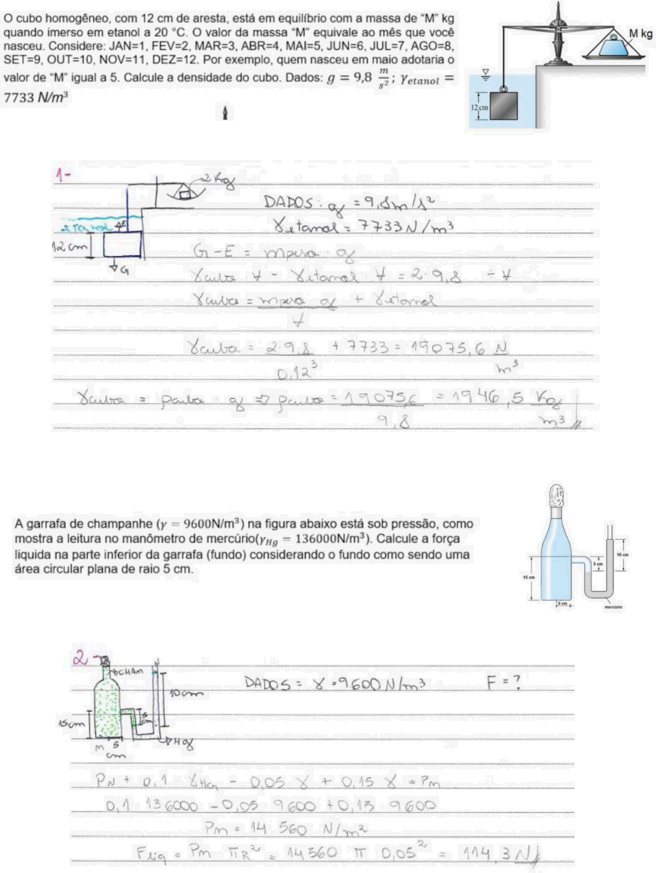 O cubo homogêneo, com 12 cm de aresta, está em equilíbrio com a massa de "M" kg
quando imerso em etanol a 20 °C. O valor da massa "M" equivale ao mês que você
nasceu. Considere: JAN=1, FEV=2, MAR=3, ABR=4, MAI=5, JUN=6, JUL=7, AGO=8,
SET=9, OUT=10, NOV=11, DEZ=12. Por exemplo, quem nasceu em maio adotaria o
valor de "M" igual a 5. Calcule a densidade do cubo. Dados: g = 9,8 m/s²; γetanol =
7733 N/m³
M kg
12 cm
1-
2 kg
DADOS: g = 9,8 m/s²
γetanol = 7733 N/m³
E
12 cm
G
G-E = massa g
γcubo ∀ - γetanol ∀ = 2·9,8 ÷ ∀
γcubo = massa g / ∀ + γetanol
γcubo = 2·9,8 / 0,12³ + 7733 = 19075,6 N/m³
γcubo = ρcubo · g ⇒ ρcubo = 19075,6 / 9,8 = 1946,5 kg/m³
A garrafa de champanhe (γ = 9600N/m³) na figura abaixo está sob pressão, como
mostra a leitura no manômetro de mercúrio(γHg = 136000N/m³). Calcule a força
liquida na parte inferior da garrafa (fundo) considerando o fundo como sendo uma
área circular plana de raio 5 cm.
10 cm
5 cm
15 cm
5 cm
mercúrio
2-
CHAM
DADOS = γ = 9600 N/m³
F = ?
10 cm
5 cm
15 cm
Hg
M 5
cm
PN + 0,1 γHg - 0,05 γ + 0,15 γ = Pm
0,1 136000 - 0,05 9600 + 0,15 9600
Pm = 14 560 N/m²
Fliq = Pm πR² = 14560 π 0,05² = 114,3 N